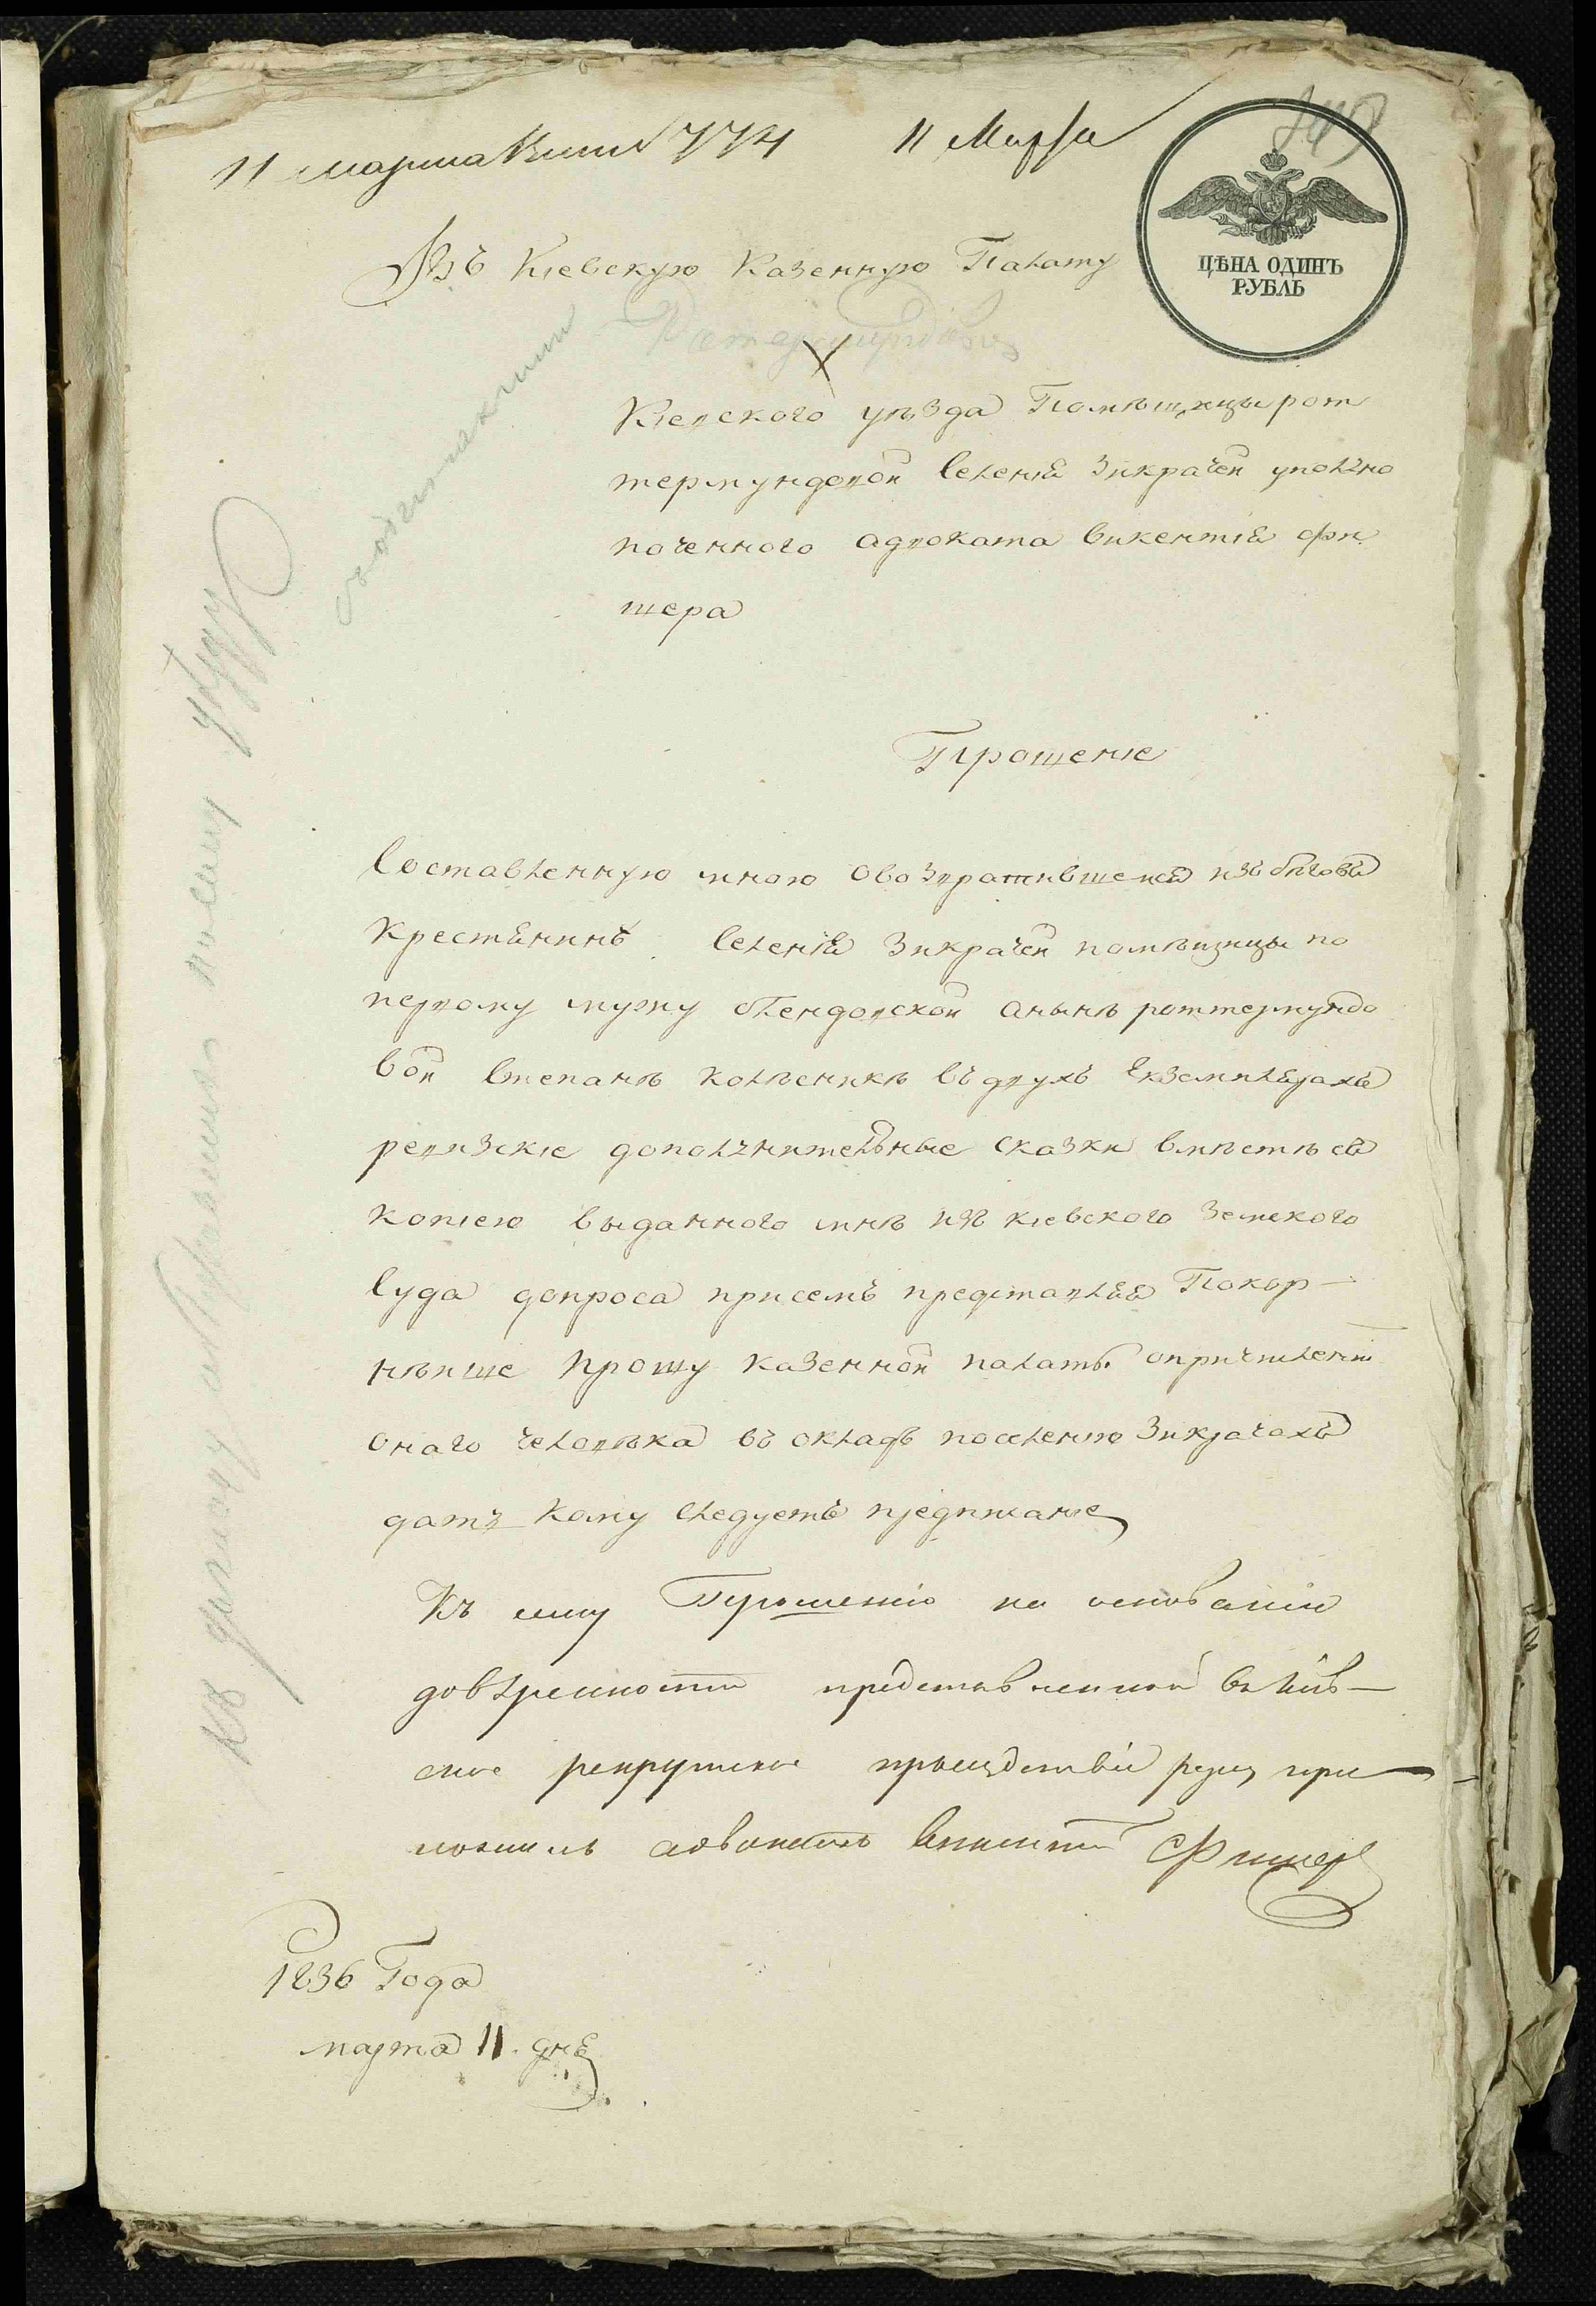 11 марта 774 11 Марта
ЦѢНА ОДИНЪ
РУБЛЬ
Въ Кіевскую Казенную Палату
Кіевского уѣзда Помѣщицы рот
термундовой Селенія Зикрачей уполно
моченного адвоката Викентія Фи
шера
Прошеніе
Составленную мною о возвратившемся изъ бѣговъ
крестянинѣ Селенія Зикрачей помѣщицы по
первому мужу Пендовской а нынѣ роттермундо
вой Степанѣ Колѣсникѣ въ двухъ екземплярахъ
ревизскіе дополнительные сказки вмѣстѣ съ
копіею выданного мнѣ изъ кіевского Земского
Суда допроса при семъ представляя Покор-
нѣише прошу казенной палаты о причисленіи
оного человѣка въ окладъ по селенію Зикрачахъ
дать кому слѣдуетъ предписаніе
Къ сему Прошенію на основаніи
довѣренности представленной въ Кіев-
ское рекрутское присудствіе руку при
ложилъ адвокатъ Викентій Фишеръ
1836 Года
марта 11. дня